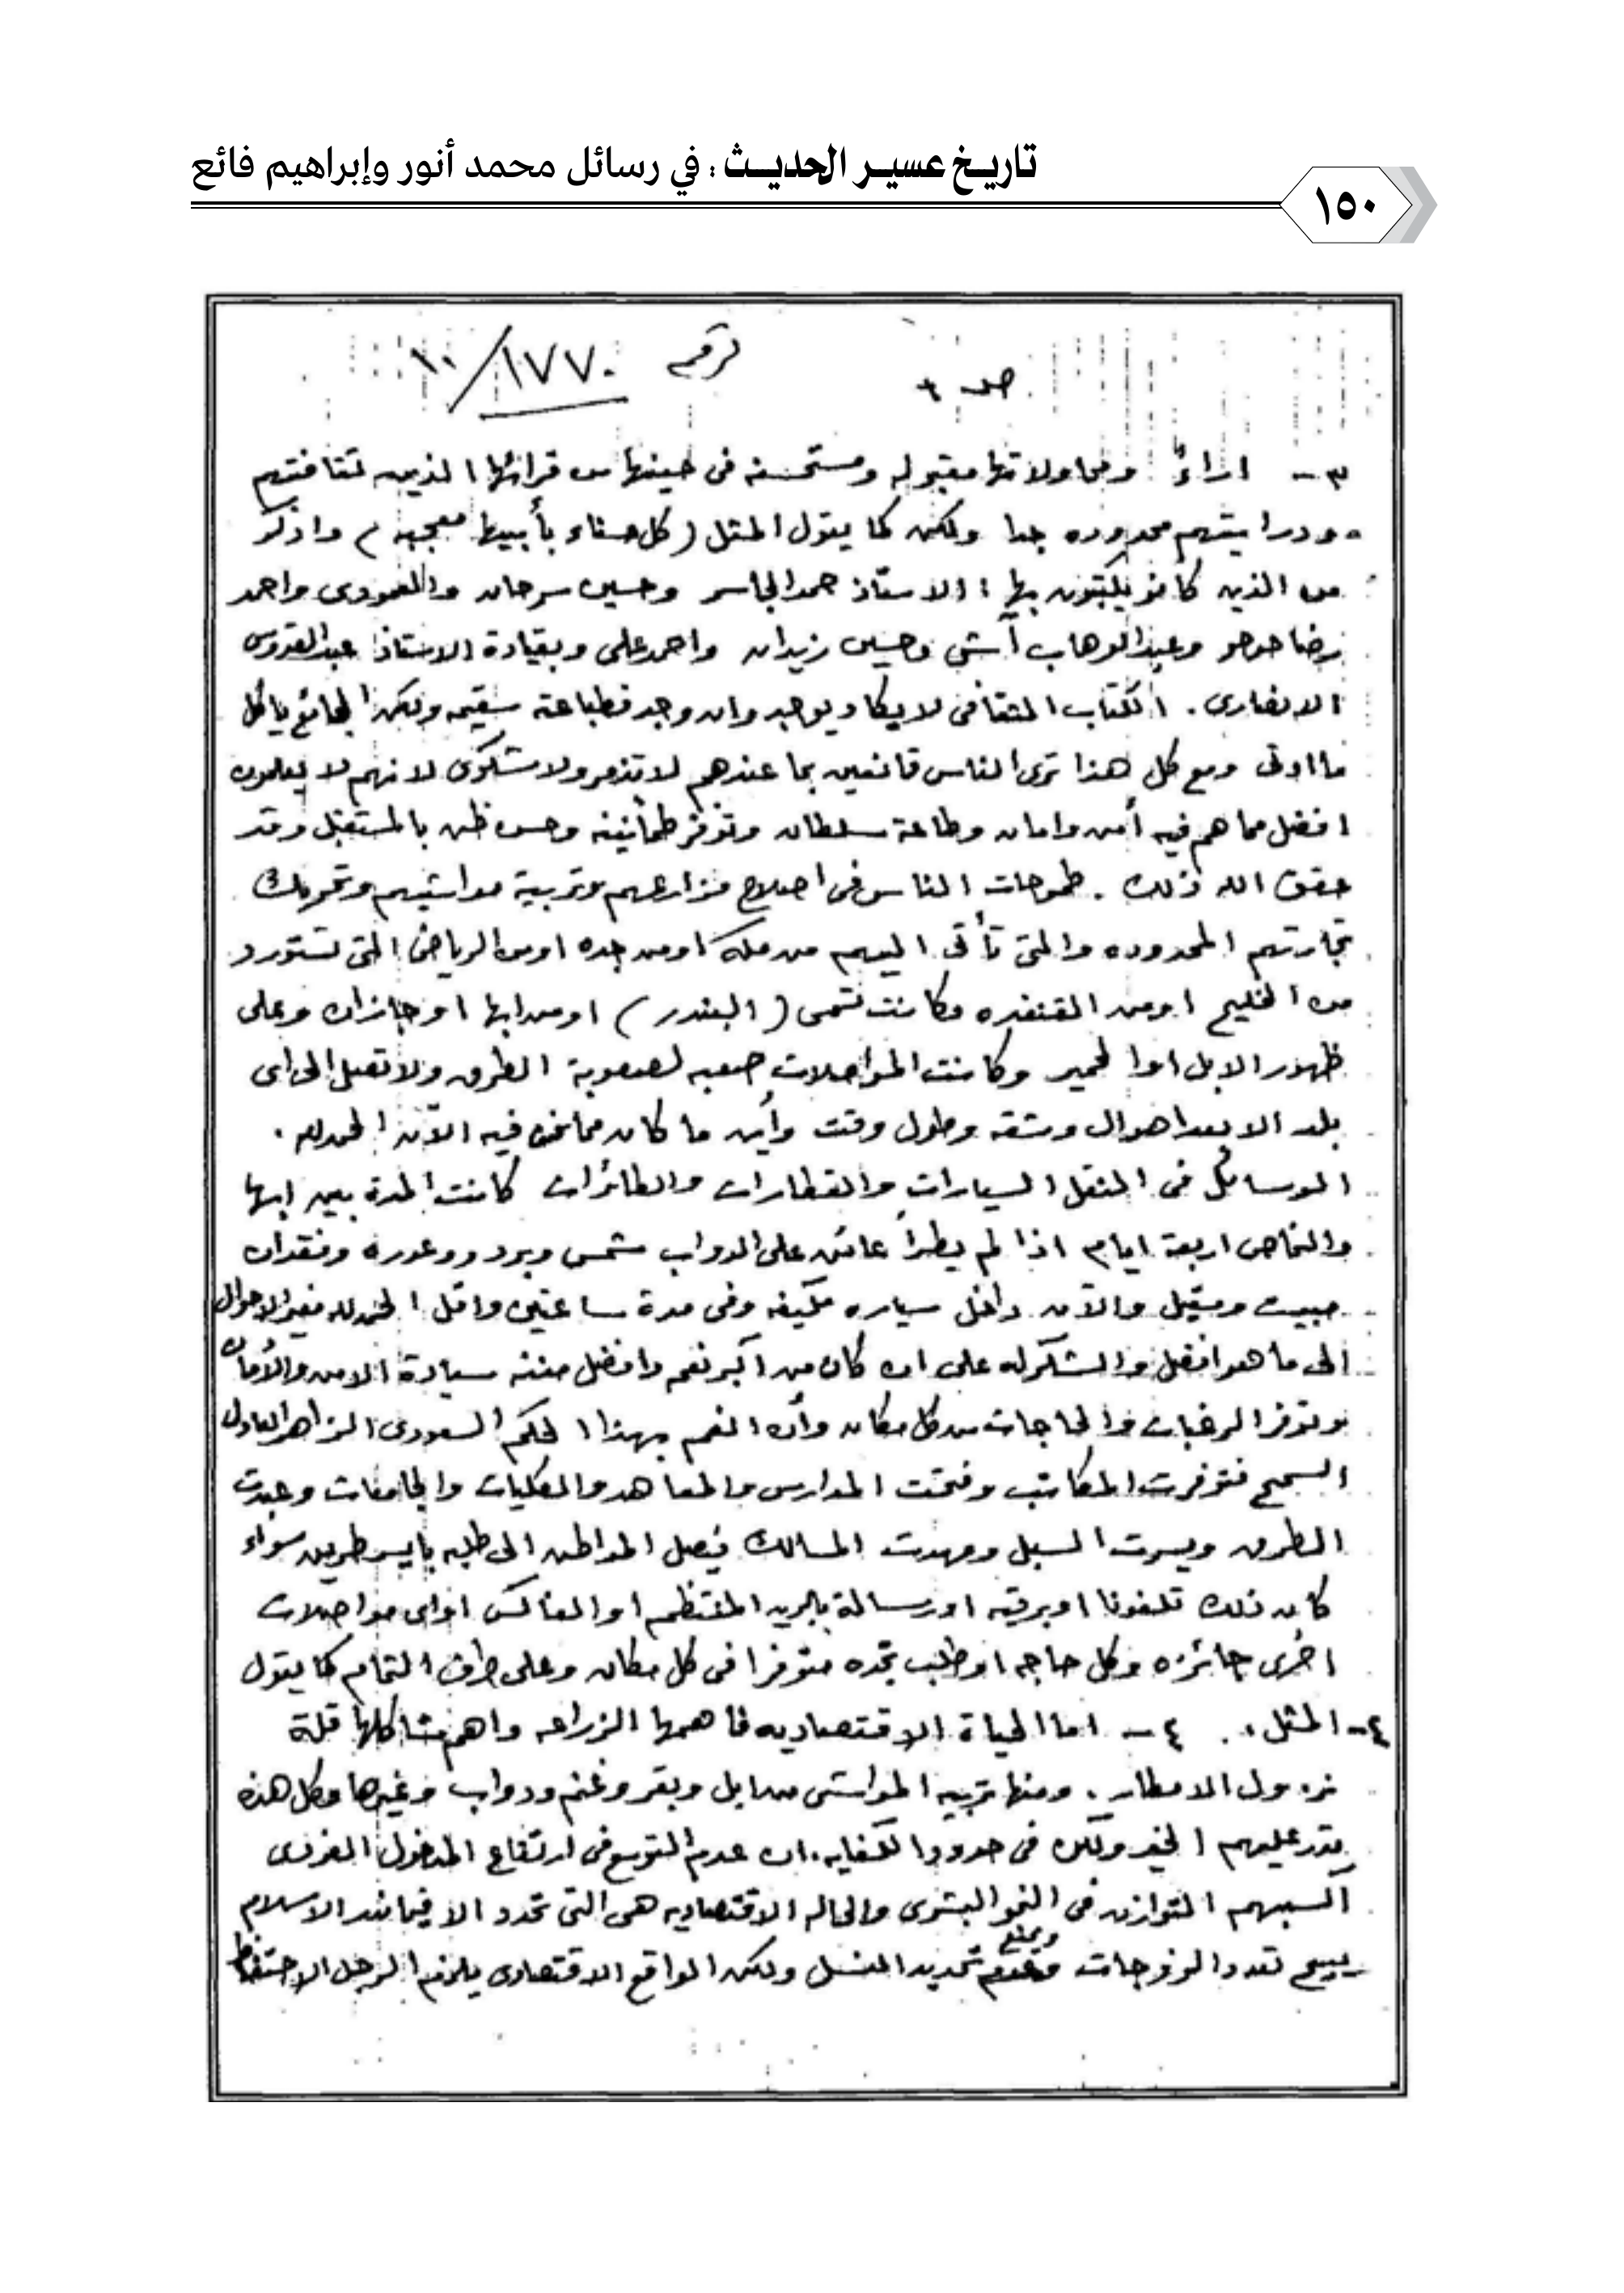 تاريخ عسير الحديث : في رسائل محمد أنور وإبراهيم فائع
١٥٠
لرقم ١٧٧٠/١٠
صـ ٣
٣ - اراءً ومحاولاتها مقبوله ومستحسنه فى حينها من قرائها الذين ثقافتهم
ودرايتهم محدوده جدا ولكن كما يقول المثل (كل حسناء بأبيها معجبه) واذكر
من الذين كانو يكتبون بها : الاستاذ حمد الجاسر وحسين سرحان والعمودى واحمد
رضا حوحو وعبد الوهاب آشى وحسين زيدان واحمد على وبقيادة الاستاذ عبد القدوس
الانصارى . الكتاب الثقافى لا يكاد يوجد وان وجد فطباعته سقيمه ولكن الجائع ياكل
ما اوتى ومع كل هذا ترى الناس قانعين بما عندهم لا تذمر ولا شكوى لانهم لا يعلمون
افضل مما هم فيه أمن وامان وطاعة سلطان وتوفر طمأنينه وحسن ظن بالمستقبل وقد
حقق الله ذلك . طموحات الناس فى اصلاح مزارعهم وتربية مواشيهم وتحريك
تجارتهم المحدوده والتى تأتى اليهم من مكة او من جده او من الرياض التى تستورد
من الخليج او من القنفذه وكانت تسمى (البندر) او من ابها او جازان وعلى
ظهور الابل او الحمير وكانت المواصلات صعبه لصعوبة الطرق ولا تصل الى اى
بلد الا بعد اهوال ومشقه وطول وقت وأين ما كان مما نحن فيه الآن الحمد لله .
الوسائل فى النقل السيارات والقطارات والطائرات كانت المدة بين ابها
والنماص اربعة ايام اذا لم يطرأ عائق على الدواب شمس وبرد ووعوره وفقدان
مبيت ومقيل والآن داخل سياره مكيفه وفى مدة ساعتين واقل الحمد لله مغير الاحوال
الى ما هو افضل والشكر له على ان كان من اكبر نعمه وافضل مننه سيادة الامن والأمان
وتوفر الرغبات والحاجات من كل مكان وأن انعم بهذا الحكم السعودى الزاهر العادل
السمح فتوفرت المكاتب وفتحت المدارس والمعاهد والكليات والجامعات وعبدت
الطرق ويسرت السبل ومهدت المسالك فيصل المواطن الى طلبه بايسر طريق سواء
كان ذلك تلفونا او برقيه او رسالة بالبريد المنتظم او الفاكس او اى مواصلات
اخرى جائزه وكل حاجه او طلب تجده متوفرا فى كل مكان وعلى طرف الثمام كما يقول
٤- المثل . ٤ - اما الحياة الاقتصاديه فاهمها الزراعه واهم مشاكلها قلة
نزول الامطار . ومنها تربيه المواشى من ابل وبقر وغنم ودواب وغيرها وكل هذه
يدر عليهم الخير ولكن فى حدود الكفايه . ان عدم التوسع فى ارتفاع الدخول الفردى
اكسبهم التوازن فى النمو البشرى والحاله الاقتصاديه هى التى تحدد الافيما ند الاسلام
يبيح تعدد الزوجات ويمنع تحديد النسل ولكن الواقع الاقتصادى يلزم الرجل الاحتفاظ